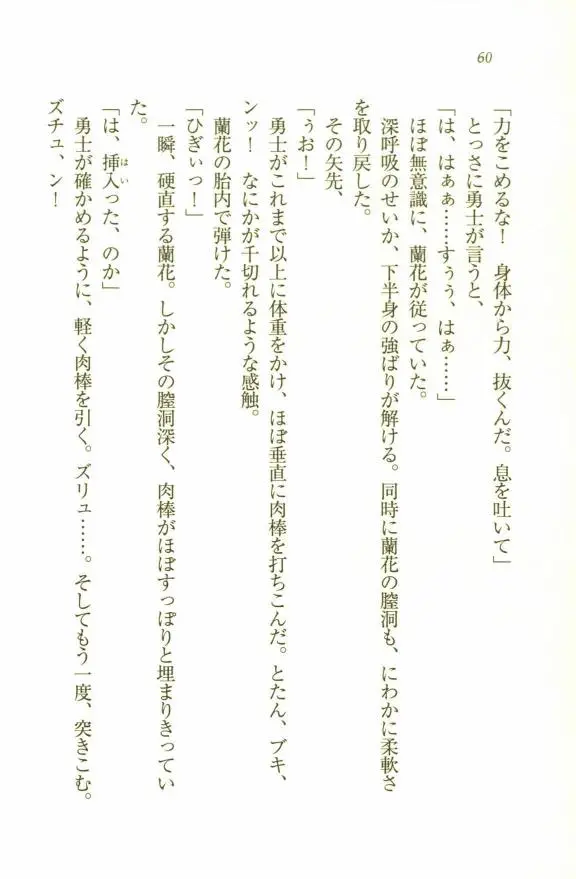 60
「力をこめるな！　身体から力、抜くんだ。息を吐いて」
とっさに勇士が言うと、
「は、はぁぁ……すぅぅ、はぁ……」
ほぼ無意識に、蘭花が従っていた。
深呼吸のせいか、下半身の強ばりが解ける。同時に蘭花の膣洞も、にわかに柔軟さ
を取り戻した。
その矢先、
「ぅお！」
勇士がこれまで以上に体重をかけ、ほぼ垂直に肉棒を打ちこんだ。とたん、ブキ、
ンッ！　なにかが千切れるような感触。
蘭花の胎内で弾けた。
「ひぎぃっ！」
一瞬、硬直する蘭花。しかしその膣洞深く、肉棒がほぼすっぽりと埋まりきってい
た。
「は、挿入った、のか」
はい
勇士が確かめるように、軽く肉棒を引く。ズリュ……。そしてもう一度、突きこむ。
ズチュ、ン！